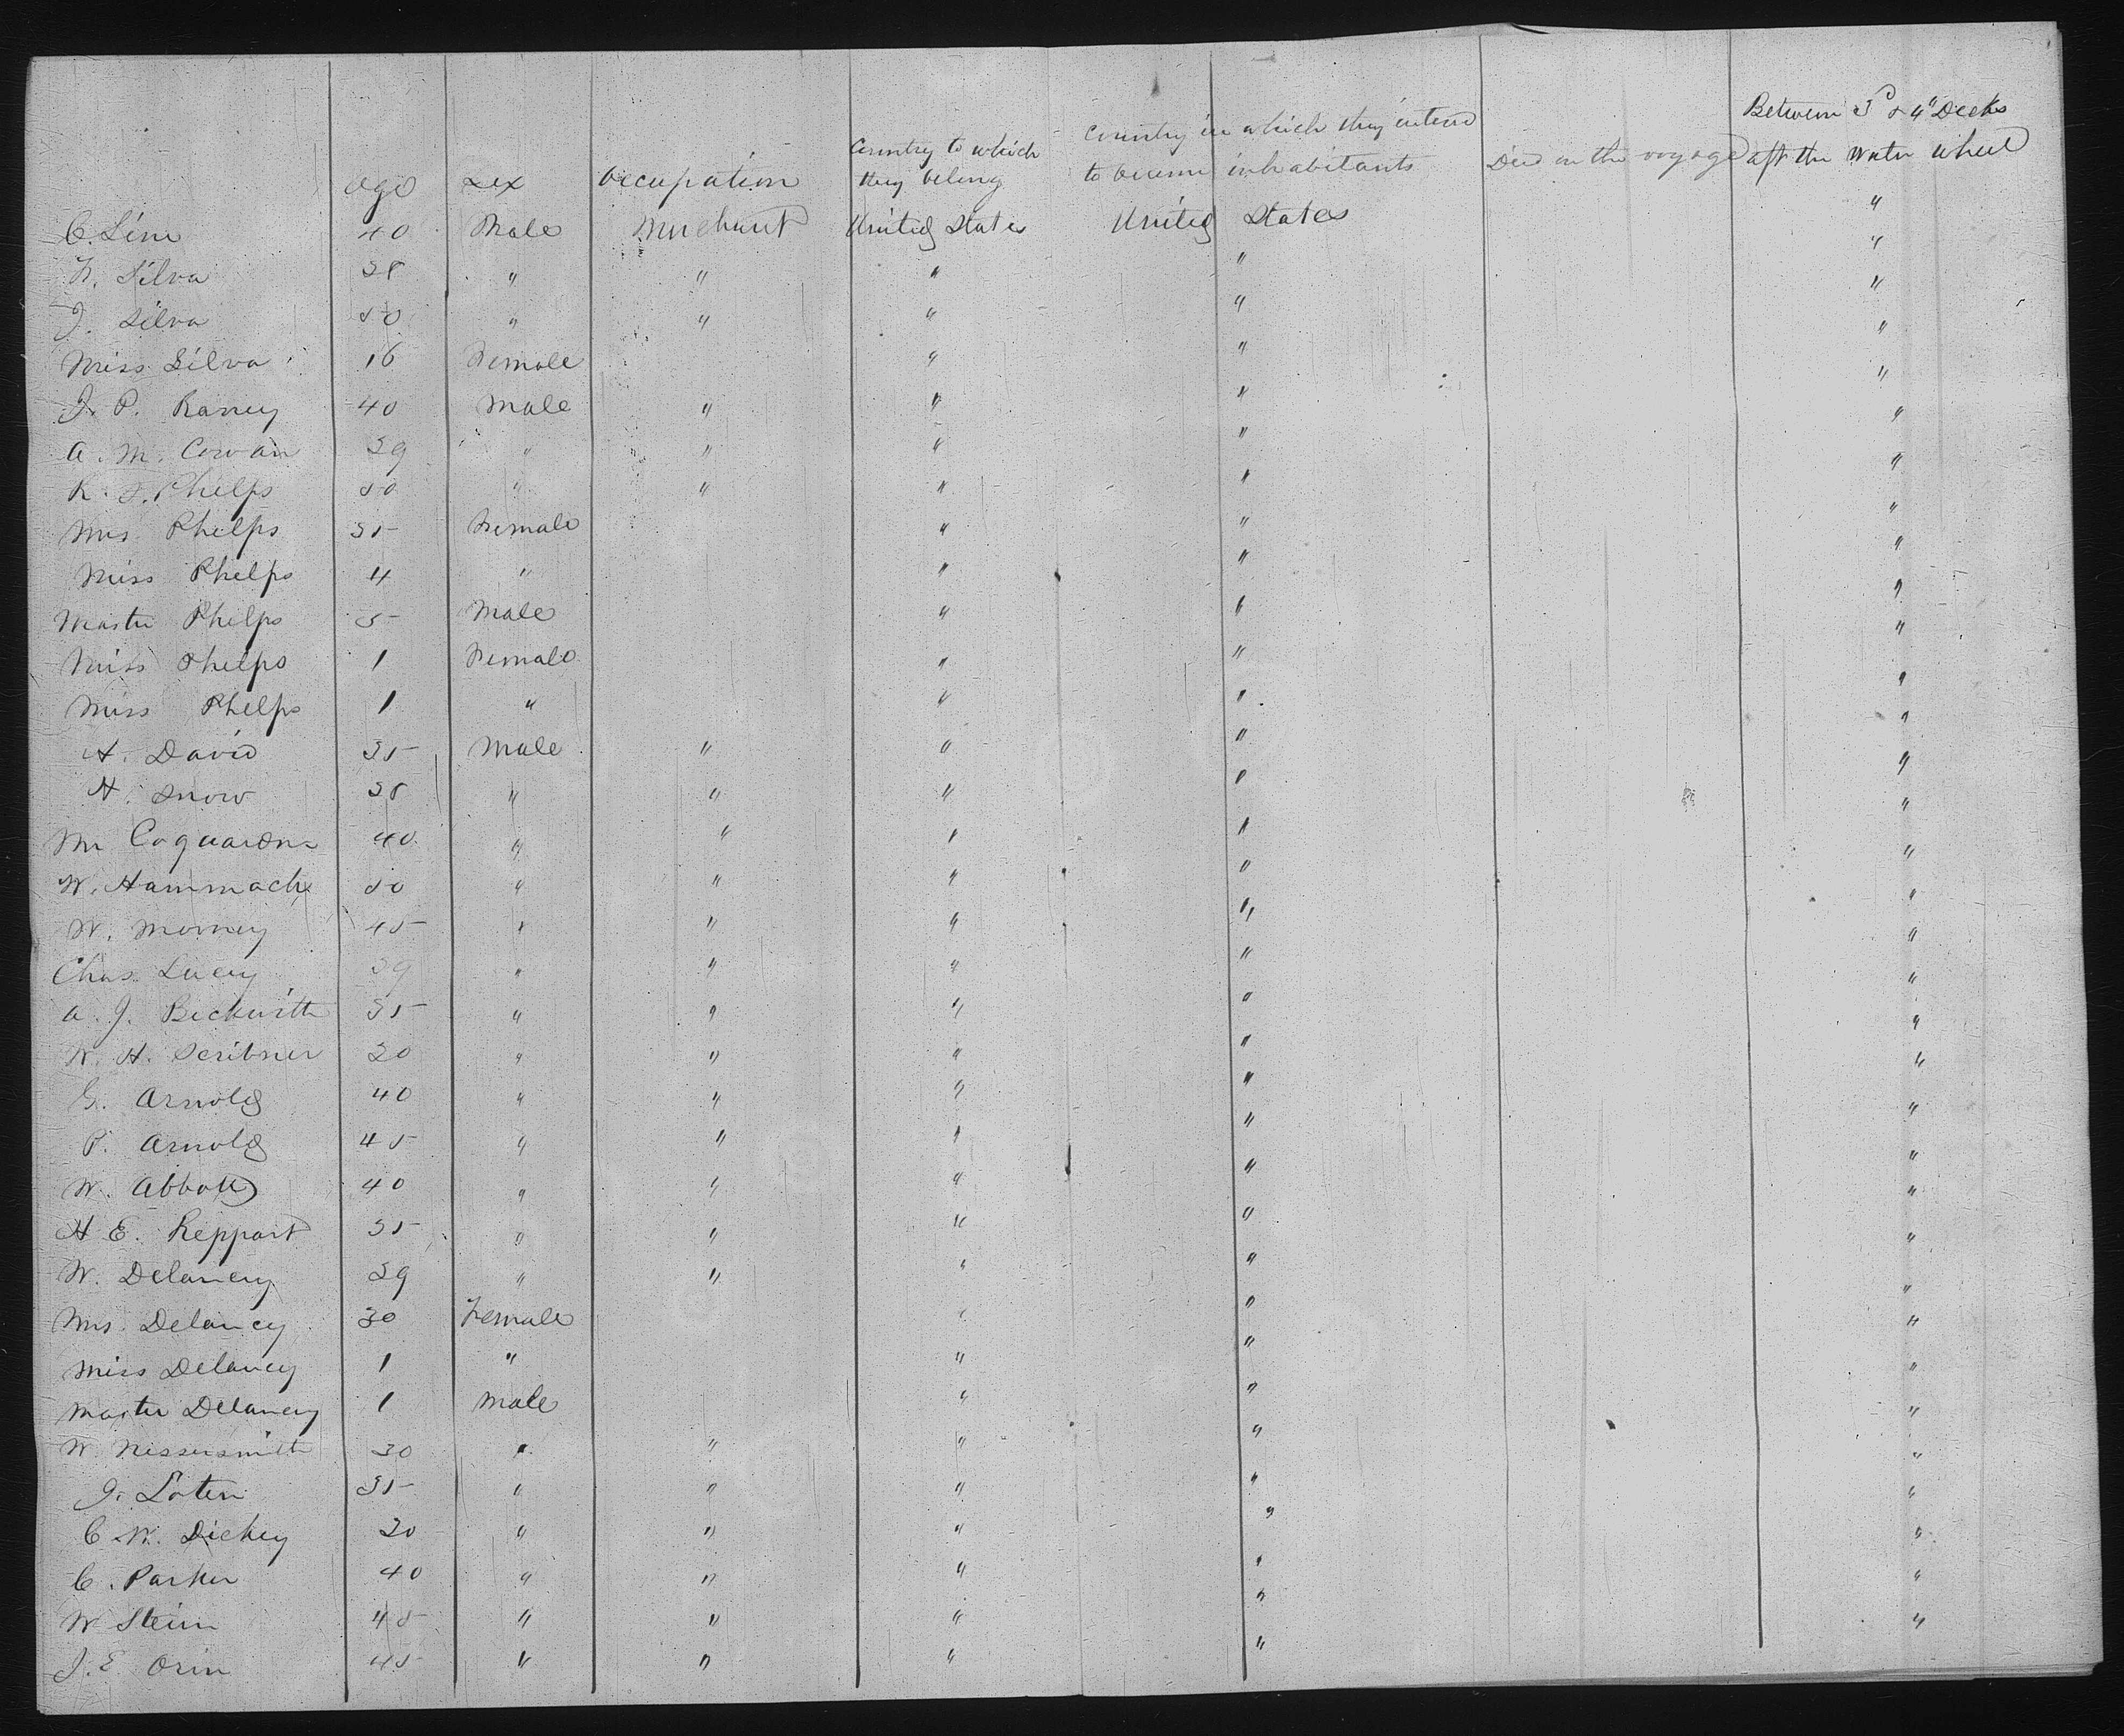 Between 3d & 4" Decks
age sex Occupation Country to which they belong Country in which they intend to become inhabitants Died on the voyage aft the water wheel
C. Line 40 Male Merchant United States United States "
F. Silva 38 " " " " "
J. Silva 50 " " " " "
Miss Silva 16 Female " " "
J. P. Raney 40 Male " " " "
A. M. Cowan 39 " " " " "
R. S. Phelps 50 " " " " "
Mrs Phelps 35 Female " " "
Miss Phelps 4 " " " "
Master Phelps 5 Male " " "
Miss Phelps 1 Female " " "
Miss Phelps 1 " " " "
A. David 35 Male " " " "
H. Snow 38 " " " " "
Mr 40 " " " " "
W. Hammack 50 " " " " "
W. Morney 45 " " " " "
Chas Lucey 39 " " " " "
A. J. Beckwith 35 " " " " "
W. H. Scribner 30 " " " " "
G. Arnold 40 " " " " "
P. Arnold 45 " " " " "
W. Abbott 40 " " " " "
H E. Reppart 35 " " " " "
W. Delancy 39 " " " " "
Mrs. Delancy 30 Female " " "
Miss Delancy 1 " " " "
Master Delancy 1 Male " " "
W. Nessersmith 30 " " " " "
J. Loten 35 " " " " "
C. W. Dickey 30 " " " " "
C. Parker 40 " " " " "
W Stein 45 " " " " "
J. E Orin 45 " " " "